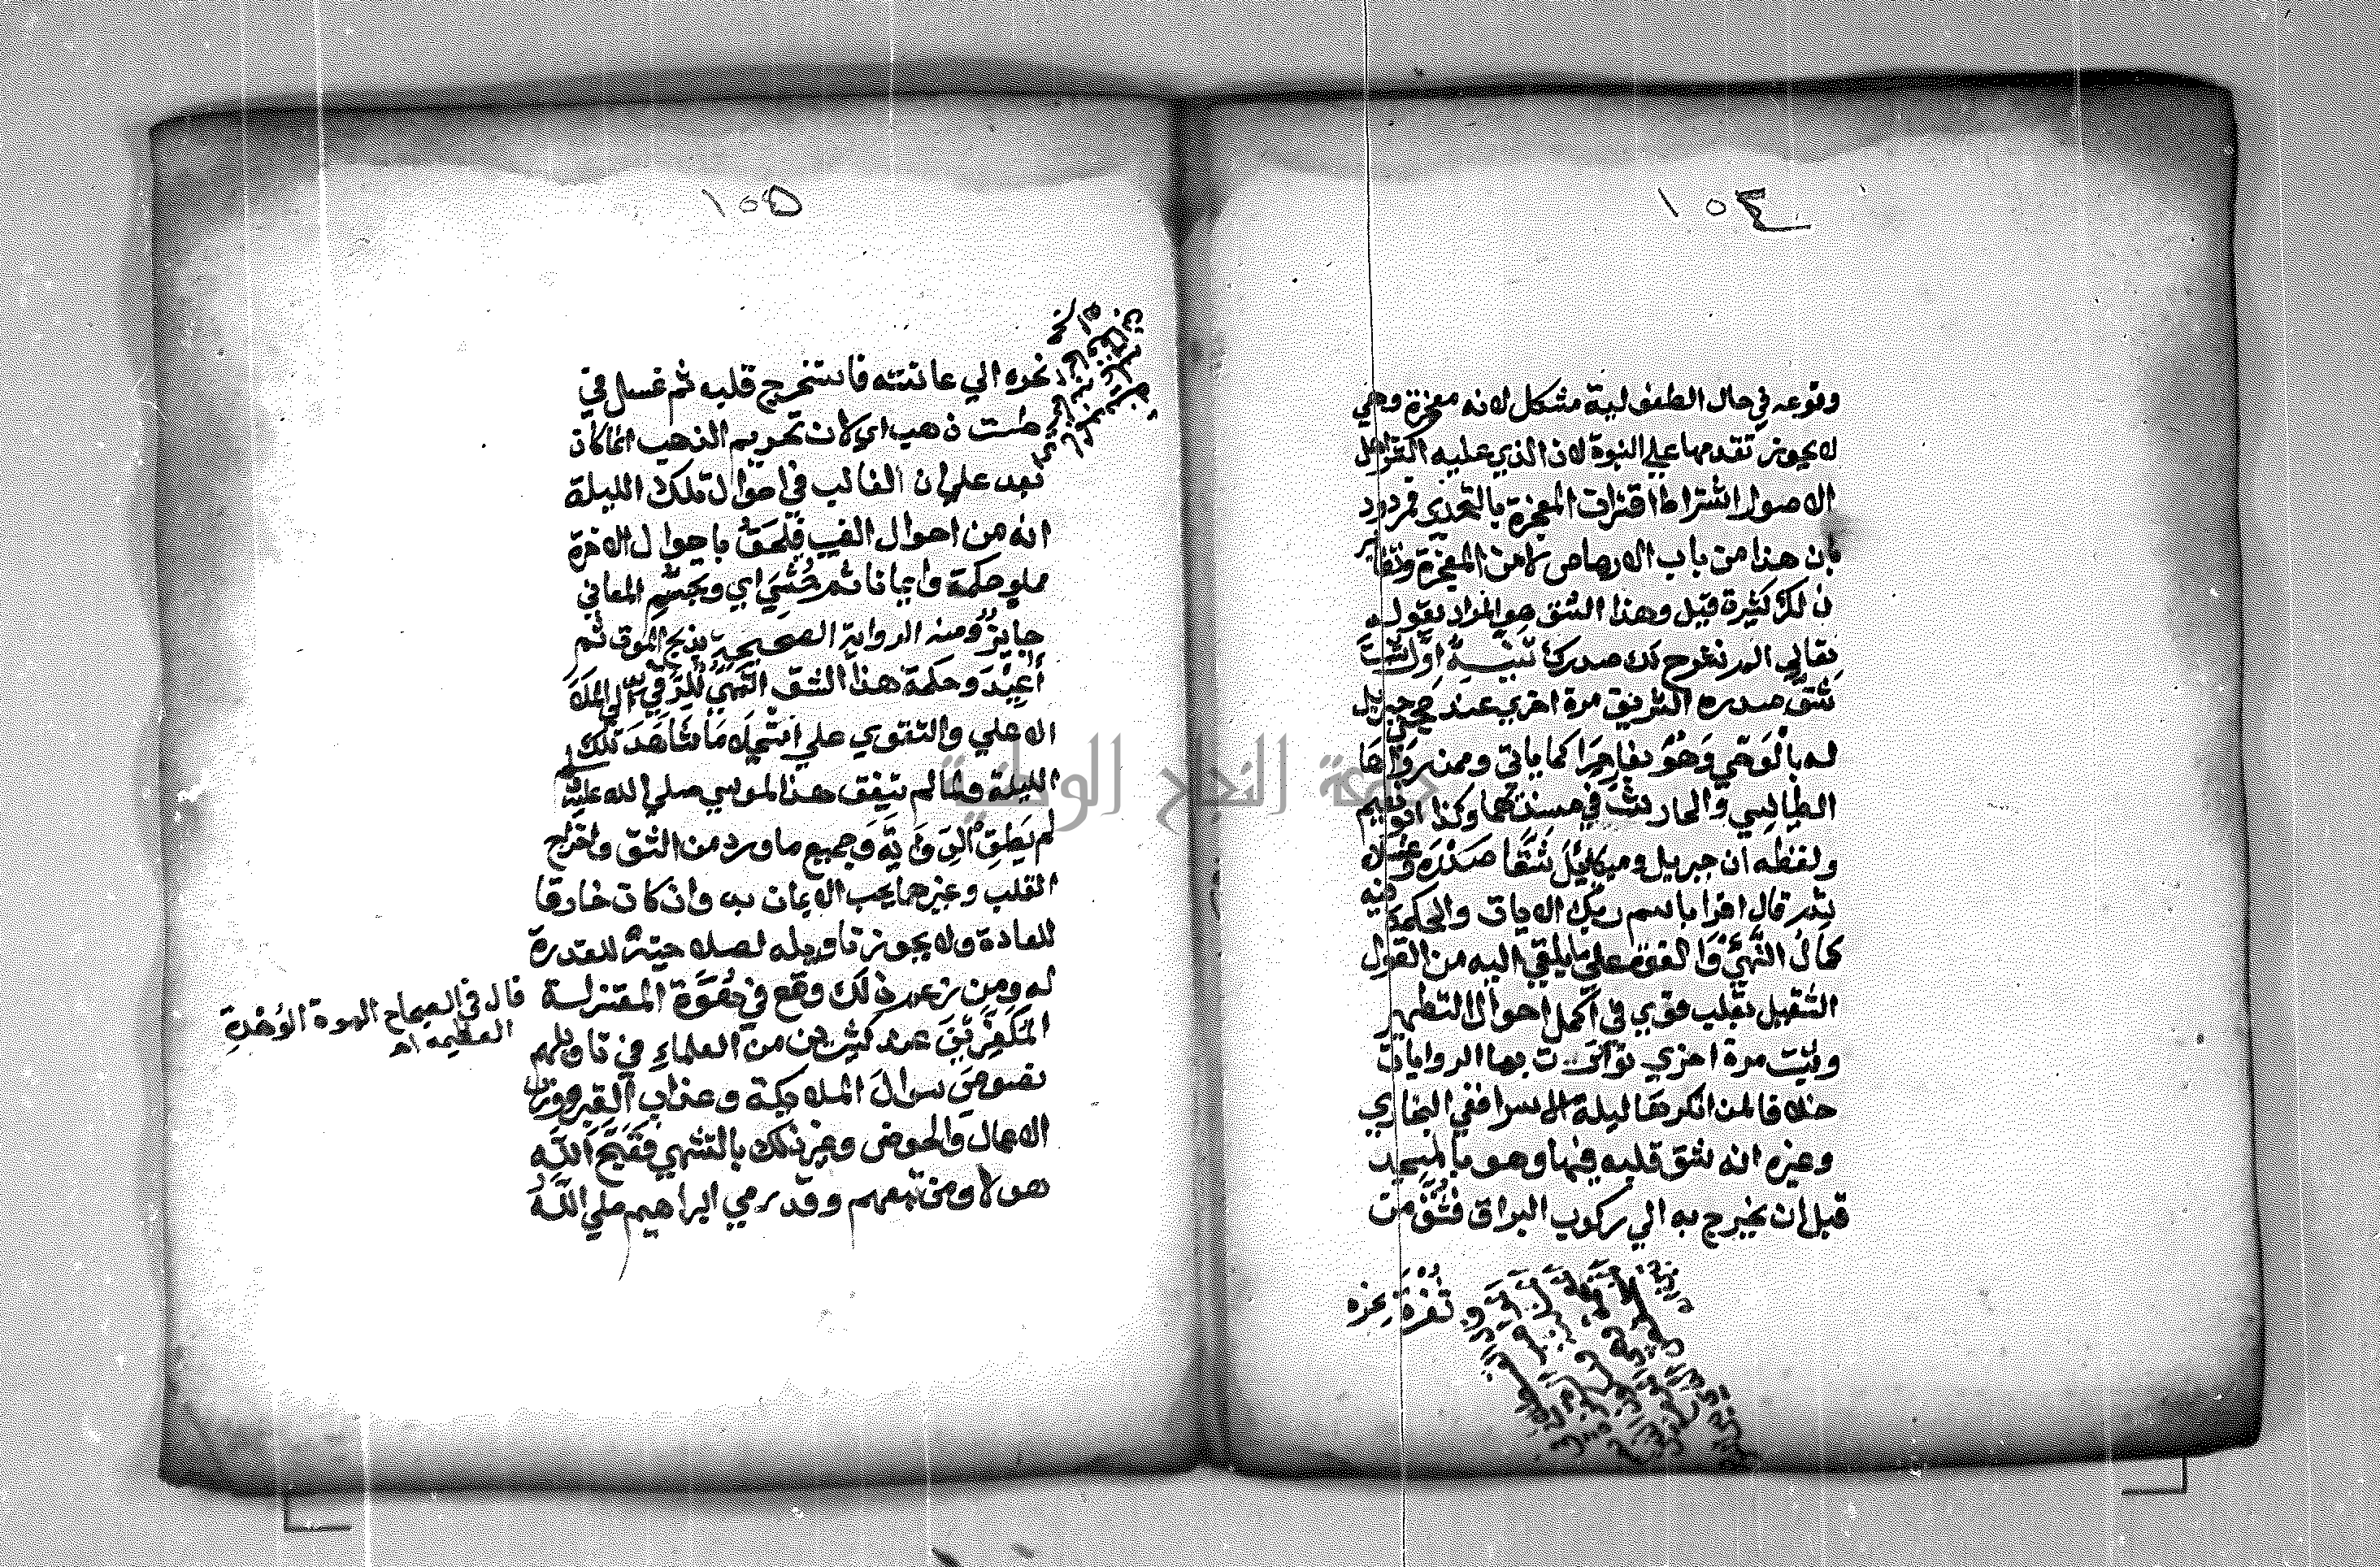 ١٠٤
وقوعه في حال الطفولية مشكل لانه معجزة وهي
لا يجوز تقدمها علي النبوة لان الذي عليه اكثر اهل
الاصول اشتراط اقتران المعجزة بالتحدي فمردود
بان هذا من باب الارهاص لا من المعجزة ونظاير
ذلك كثيرة قبل وهذا الشق هو المراد بقوله
تعالي الم نشرح لك صدرك
شق صدره الشريف مرة اخري عند مجي جبريل
له بالوحي وهو بغار حرا كما ياتي وممن رواها
الطيالسي والحارث في مسنديهما وكذا ابو نعيم
ولفظه ان جبريل وميكائيل شقا صدره وغسلاه
ثم قال اقرا باسم ربك الايات والحكمة فيه
كمال التهيؤ والقوة علي ما يلقي اليه من القول
الثقيل بقلب قوي في اكمل احوال التطهير
وثبت مرة اخري تواترت بها الروايات
خلافا لمن انكرها ليلة الاسرا ففي البخاري
وغيره انه شق قلبه فيها وهو بالمسجد
قبل ان يخرج به الي ركوب البراق فشق من
ثغرة نحره
١٠٥
نحره الي عانته فاستخرج قلبه ثم غسل في
طست ذهب اي لان تحريم الذهب انما كان
بعد علي ان الغالب في احوال تلك الليلة
انه من احوال الغيب فلحق باحوال الاخرة
مملو حكمة وايمانا ثم حشي اي وتجسيم المعاني
جايز ومنه الرواية الصحيحة بذبح الموت ثم
أعيد وحكمة هذا الشق التهيؤ للترقي الي الملاء
الاعلي والتقوي علي استجلاء ما شاهد تلك
الليلة ولما لم يتفق هذا لموسي صلي الله عليه وسلم
لم يطق الرؤية وجميع ما ورد من الشق واخراج
القلب وغيرهما يجب الايمان به وان كان خارقا
للعادة ولا يجوز تاويله لصلاحية القدرة
له ومن زعم ذلك وقع في هوة المعتزلة
قال في الصحاح الهوة الوهدة
العظيمة اه
المكفرين عند كثيرين من العلماء في تاويلهم
نصوص سوال الملائكة وعذاب القبر ووزن
الاعمال والحوض وغير ذلك بالتشهي فقبح الله
هولا ومن تبعهم وقد رمي ابراهيم صلي الله